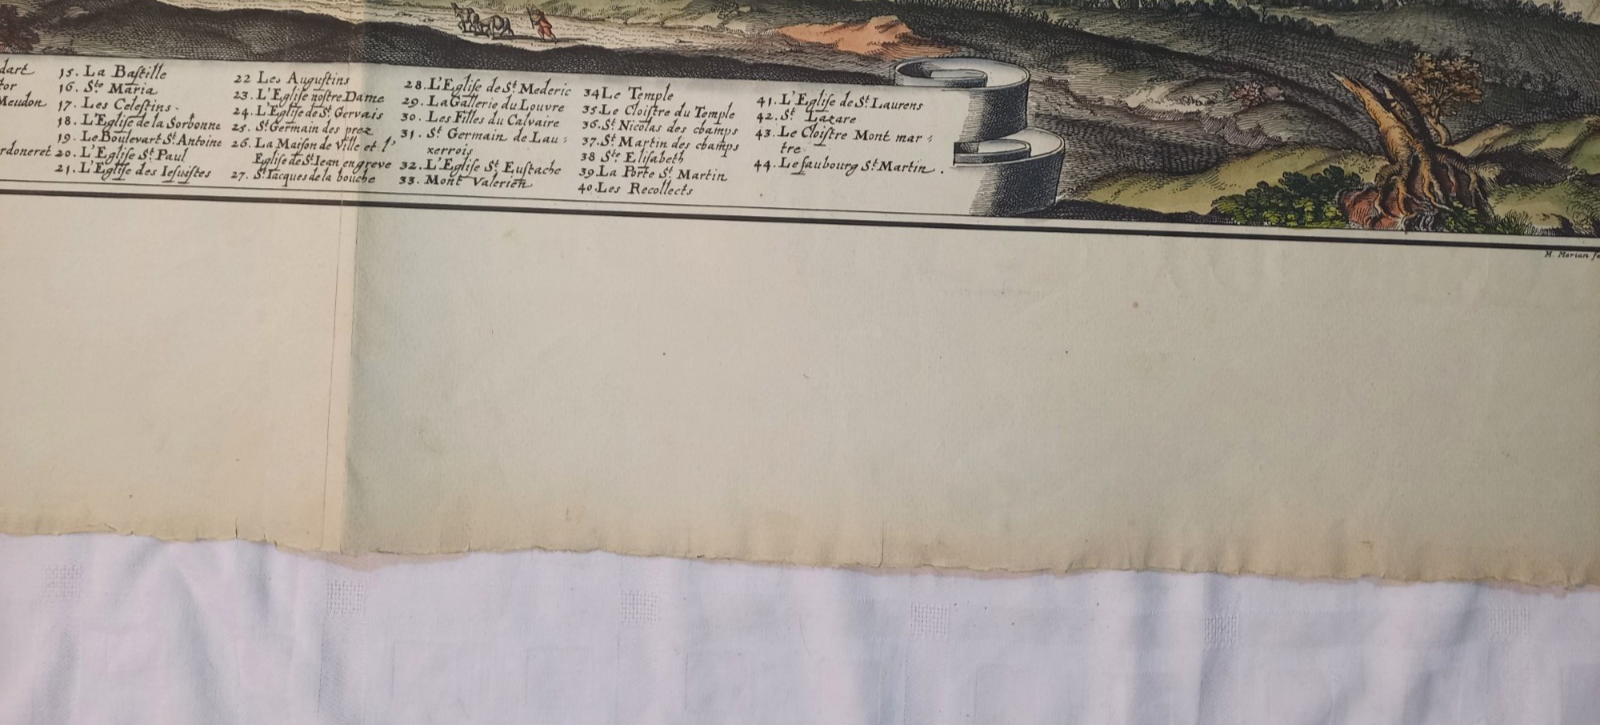 dart
tor
Meudon
rdoneret
15. La Bastille
16. Ste Maria
17. Les Celestins.
18. L'Eglise de la Sorbonne
19. Le Boulevart St. Antoine
20. L'Eglise St. Paul
21. L'Eglise des Iesuistes
22 Les Augustins
23. L'Eglise nostre Dame
24. L'Eglise de St. Gervais
25. St. Germain des prez
26. La Maison de Ville et l'
Eglise de St. Iean en greve
27. St. Iacques de la bouche
28. L'Eglise de St. Mederic
29. La Gallerie du Louvre
30. Les Filles du Calvaire
31. St Germain de Lau:
xerrois
32. L'Eglise St. Eustache
33. Mont Valerien
34 Le Temple
35. Le Cloistre du Temple
36. St. Nicolas des champs
37. St. Martin des champs
38 Ste Elisabeth
39. La Porte St. Martin
40. Les Recollects
41. L'Eglise de St. Laurens
42. St. Lazare
43. Le Cloistre Mont mar:
tre
44. Le faubourg St. Martin.
M. Merian fe